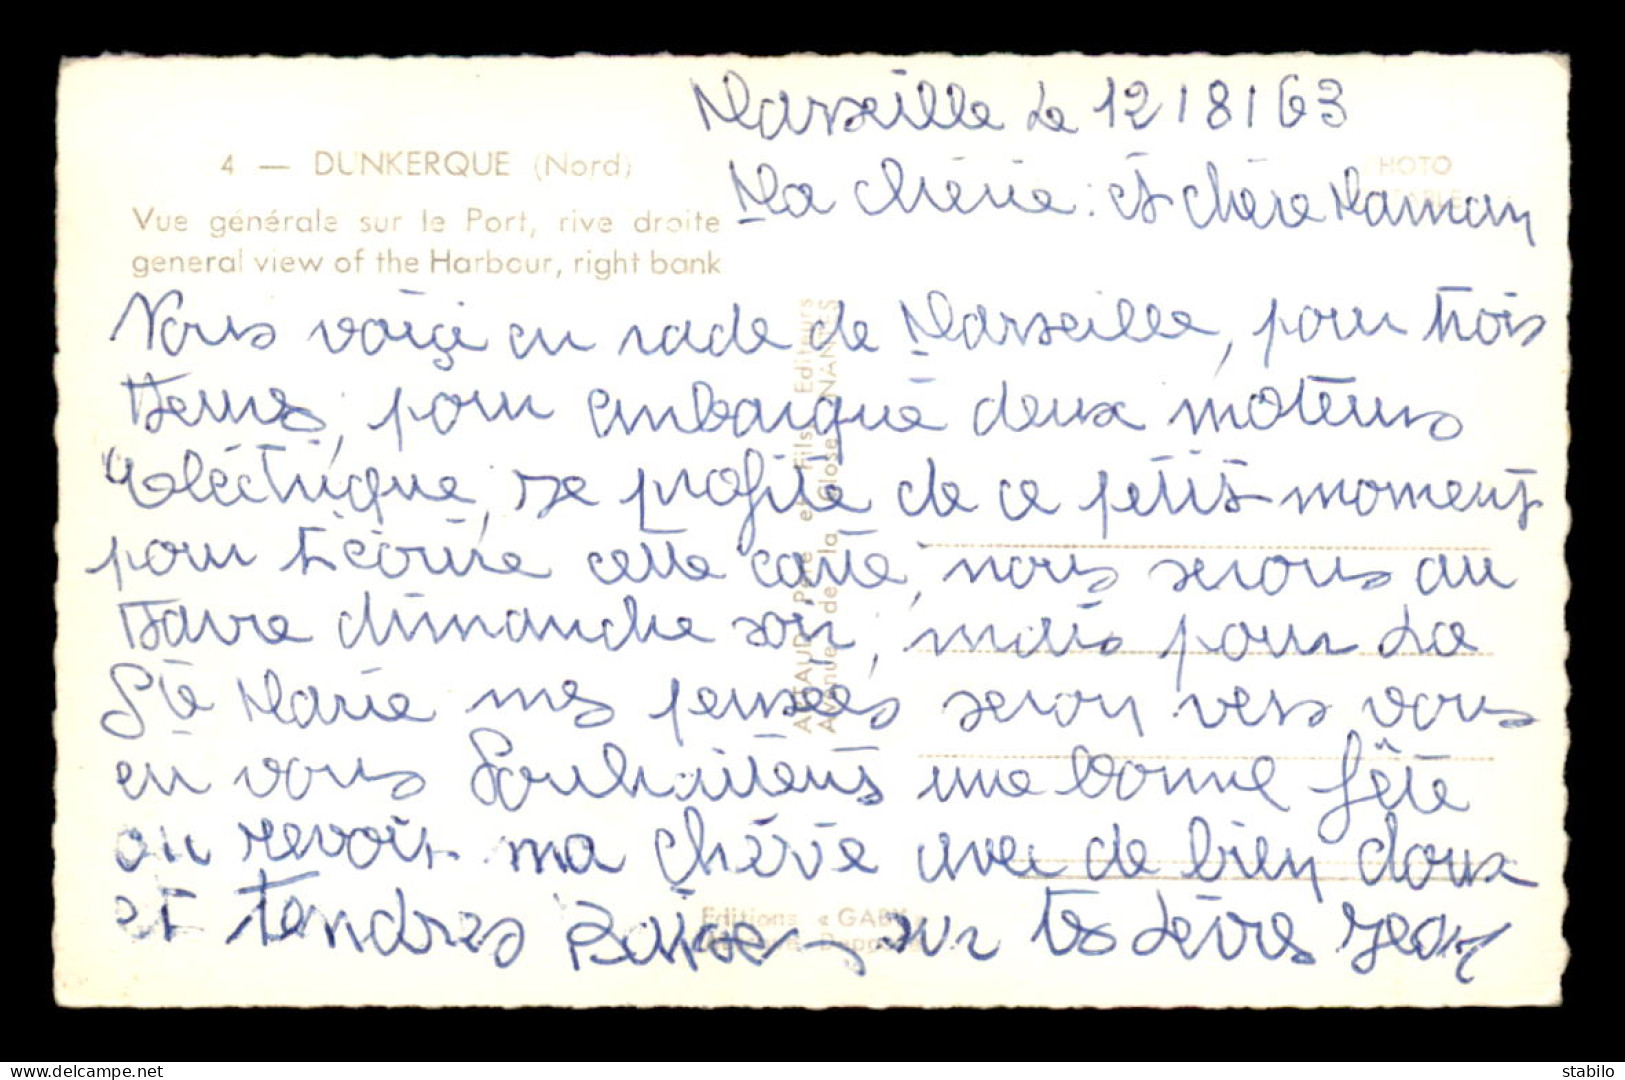 Marseille Le 12/8/63
4 — DUNKERQUE (Nord)
HOTO
Ma chérie : et chère Maman
Vue générale sur le Port, rive droite
general view of the Harbour, right bank
Nous voiçi en rade de Marseille, pour trois
heures, pour embarqué deux moteurs
éléctrique, je profite de ce petit moment
pour t'écrire cette carte, nous serons au
Havre dimanche soir, mais pour La
Ste Marie mes pensées seron vers vous
en vous souhaitent une bonne fête
au revoir ma chérie avec de bien doux
et tendres Baiser sur tes Lèvres Jean
ARTAUD Père et Fils, Editeurs
Avenue de la Close NANTES
Editions « GABY »